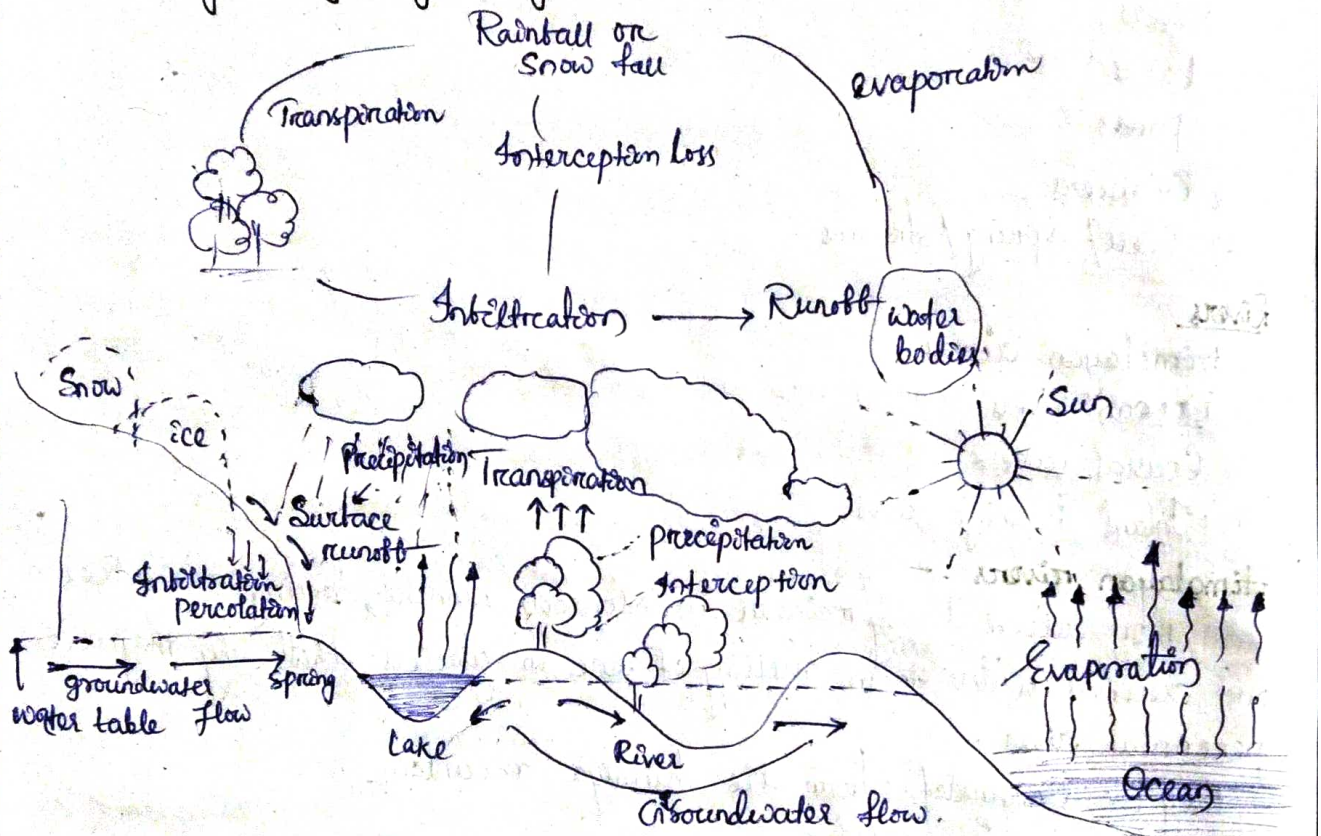 Rainfall or
Snow fall
evaporation
Transpiration
Interception Loss
Infiltration
Runoff
water
bodies
Snow
Sun
ice
Precipitation
Transpiration
Surface
runoff
precipitation
Interception
Infiltration
percolation
Evaporation
groundwater
flow
Spring
water table
Lake
River
Ocean
Groundwater flow.